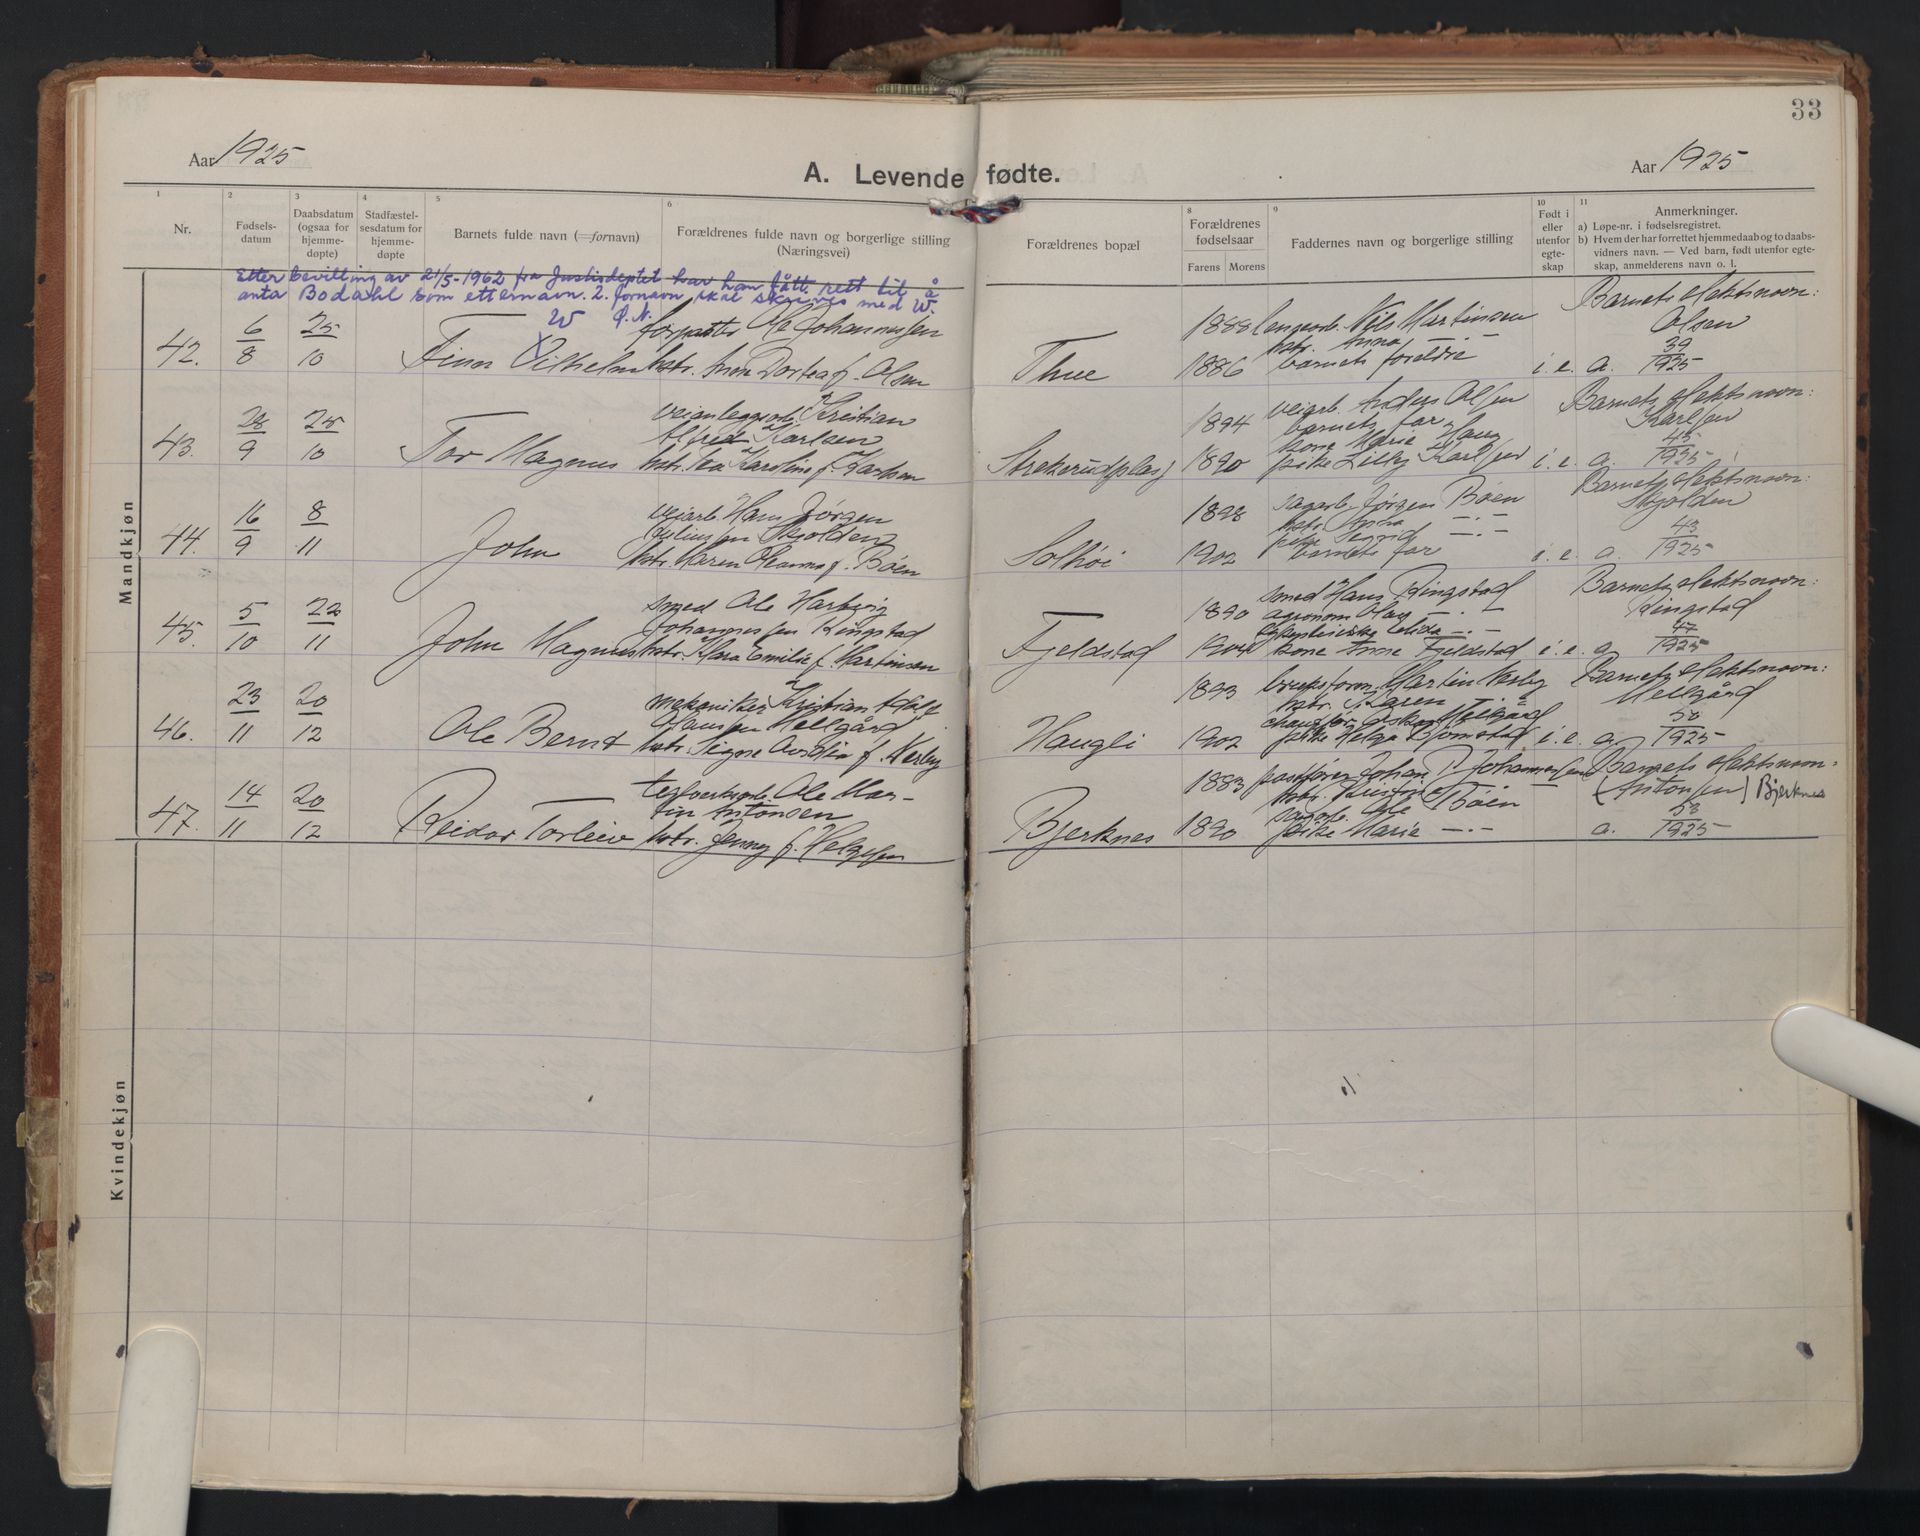 33
Aar 1925
A. Levende fødte.
Aar 1925
1 2 3 4 5 6 8 9 10 11
Nr.
Fødsels-
datum
Daabsdatum
(ogsaa for
hjemme-
døpte)
Stadfæstel-
sesdatum for
hjemme-
døpte
Barnets fulde navn (=fornavn)
Forældrenes fulde navn og borgerlige stilling
(Næringsvei)
Forældrenes bopæl
Forældrenes
fødselsaar
Farens Morens
Faddernes navn og borgerlige stilling
Født i
eller
utenfor
egte-
skap
Anmerkninger.
a) Løpe-nr. i fødselsregistret.
b) Hvem der har forrettet hjemmedaab og to daabs-
vidners navn. — Ved barn, født utenfor egte-
skap, anmelderens navn o. l.
Mandkjøn
Etter bevilling av 21/5-1962 fra Justisdeptet har han fått rett til å
anta Bodahl som etternavn. 2. fornavn skal skrives med W.
42.
6/8
25/10
W
Finn Vilhelm
Ole Johannessen
hstr. Anna Dortea f. Olsen
Thue
1888
1886
Nils Martinsen
hstr. Anna —"—
barnets foreldre
i. e.
Barnets slektsnavn:
Olsen
a. 39/1925
43.
28/9
25/10
Tor Magnus
Kristian
Alfred Karlsen
hstr. Karoline f. Karlsen
Strekerudplass
1894
1890
veiarb. Anders Olsen
barnets far
kone Marie Haug
pike Lilly Karlsen
i. e.
Barnets slektsnavn:
Karlsen
a. 45/1925
44.
16/9
8/11
John
veiarb. Hans Jørgen
Juliussen Skjolden
hstr. Maren Oleanna f. Bøen
Solhøi
1898
1902
sagarb. Jørgen Bøen
hstr. Anna —"—
pike Sigrid —"—
barnets far
i. e.
Barnets slektsnavn:
Skjolden
a. 43/1925
45.
5/10
22/11
John Magnus
smed Ole Hartvig
Johannessen Ringstad
hstr. Klara Emilie f. Martinsen
Fjeldstad
1890
1904
smed Hans Ringstad
agronom Olav —"—
kone Anne Fjeldstad
i. e.
Barnets slektsnavn:
Ringstad
a. 47/1925
46.
23/11
20/12
Ole Bernt
mekaniker Kristian Adolf
Hanssen Mellgård
hstr. Signe f. Nesby
Haugli
1893
1902
Martin Nesby
hstr. Karen —"—
Mellgård
pike Helga Bjørnstad
i. e.
Barnets slektsnavn:
Mellgård
a. 50/1925
47.
14/11
20/12
Reidar Torleiv
teglverksarb. Ole Mar-
tin Antonsen
hstr. Jenny f. Helgesen
Bjerknes
1883
1890
Johan Johannessen
hstr. Kristine —"—
Ole Bøen
pike Marie —"—
Barnets slektsnavn:
(Antonsen) Bjerknes
a. 53/1925
Kvindekjøn